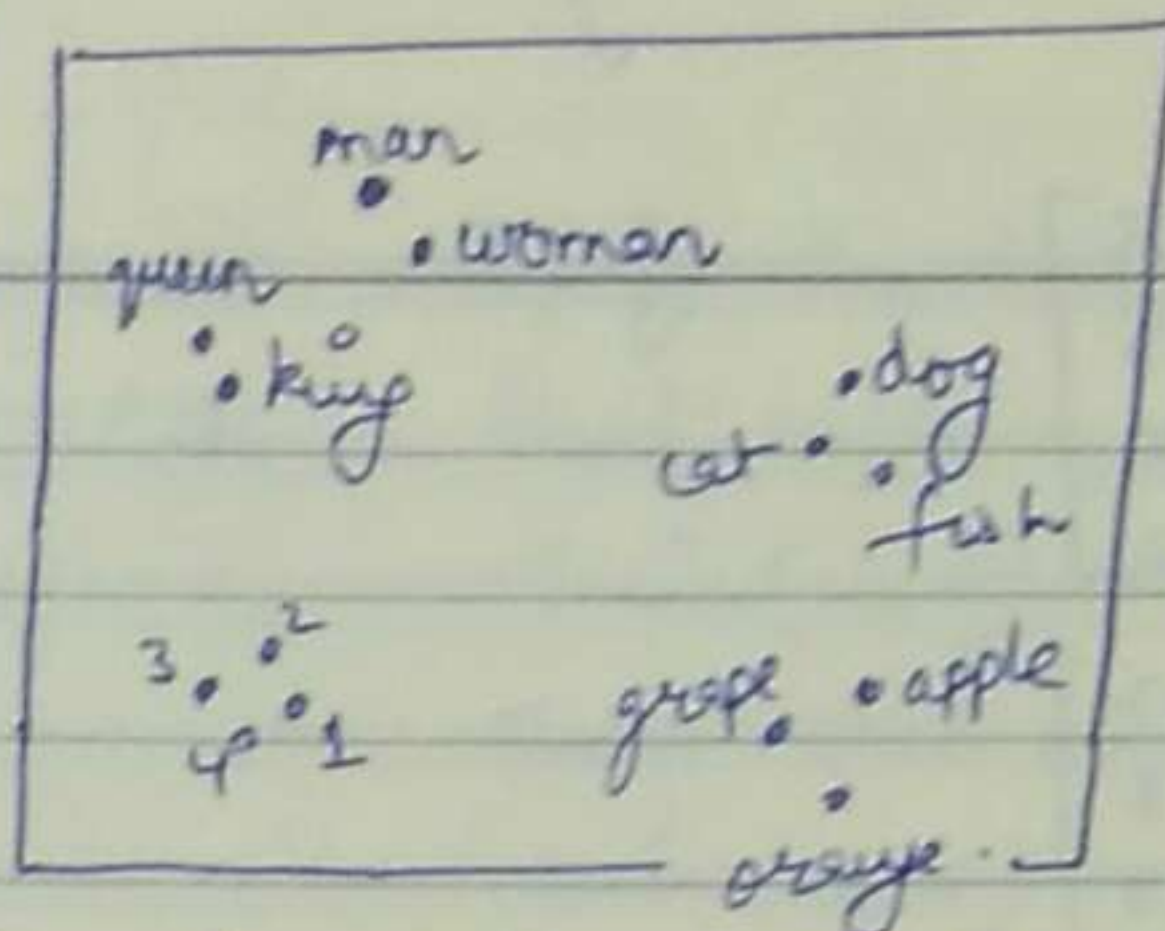 man
woman
queen
king
dog
cat
fish
3 2
4 1
grape apple
orange